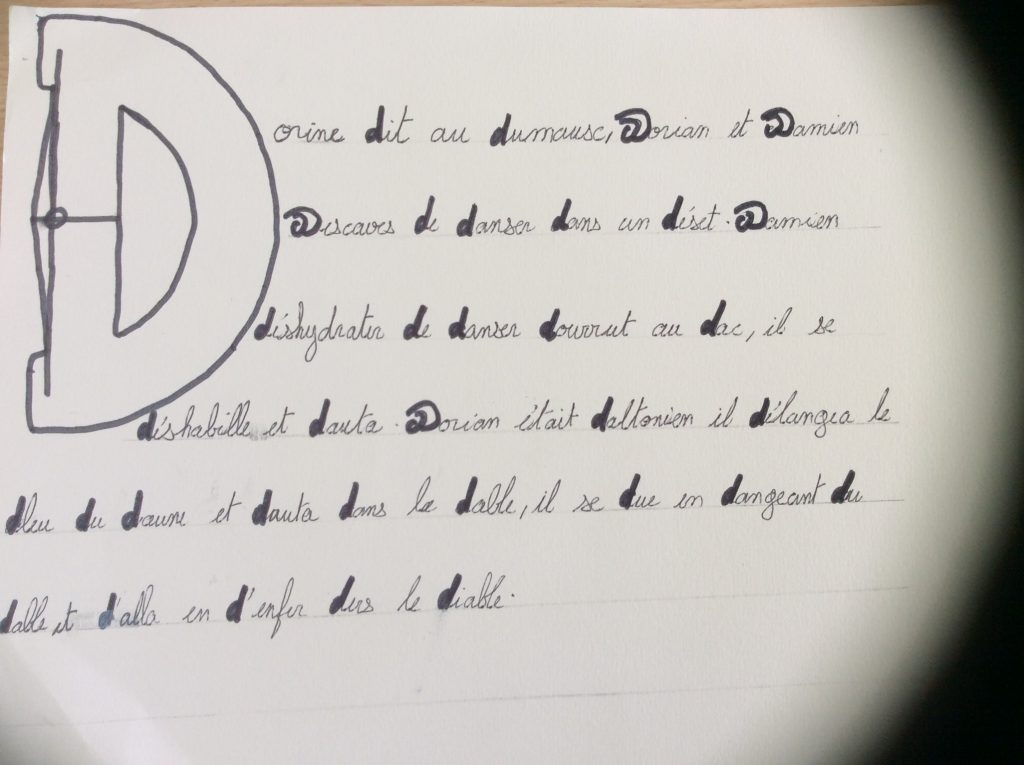 Dorine dit au dumausc, Dorian et Damien
Discaves de danser dans un déset. Damien
déshydrater de danser dourrut au dac, il se
déshabille et dauta. Dorian était daltonien il délangea le
dleu du daune et dauta dans le dable, il se due en dangeant du
dable et d'alla en d'enfer ders le diable.